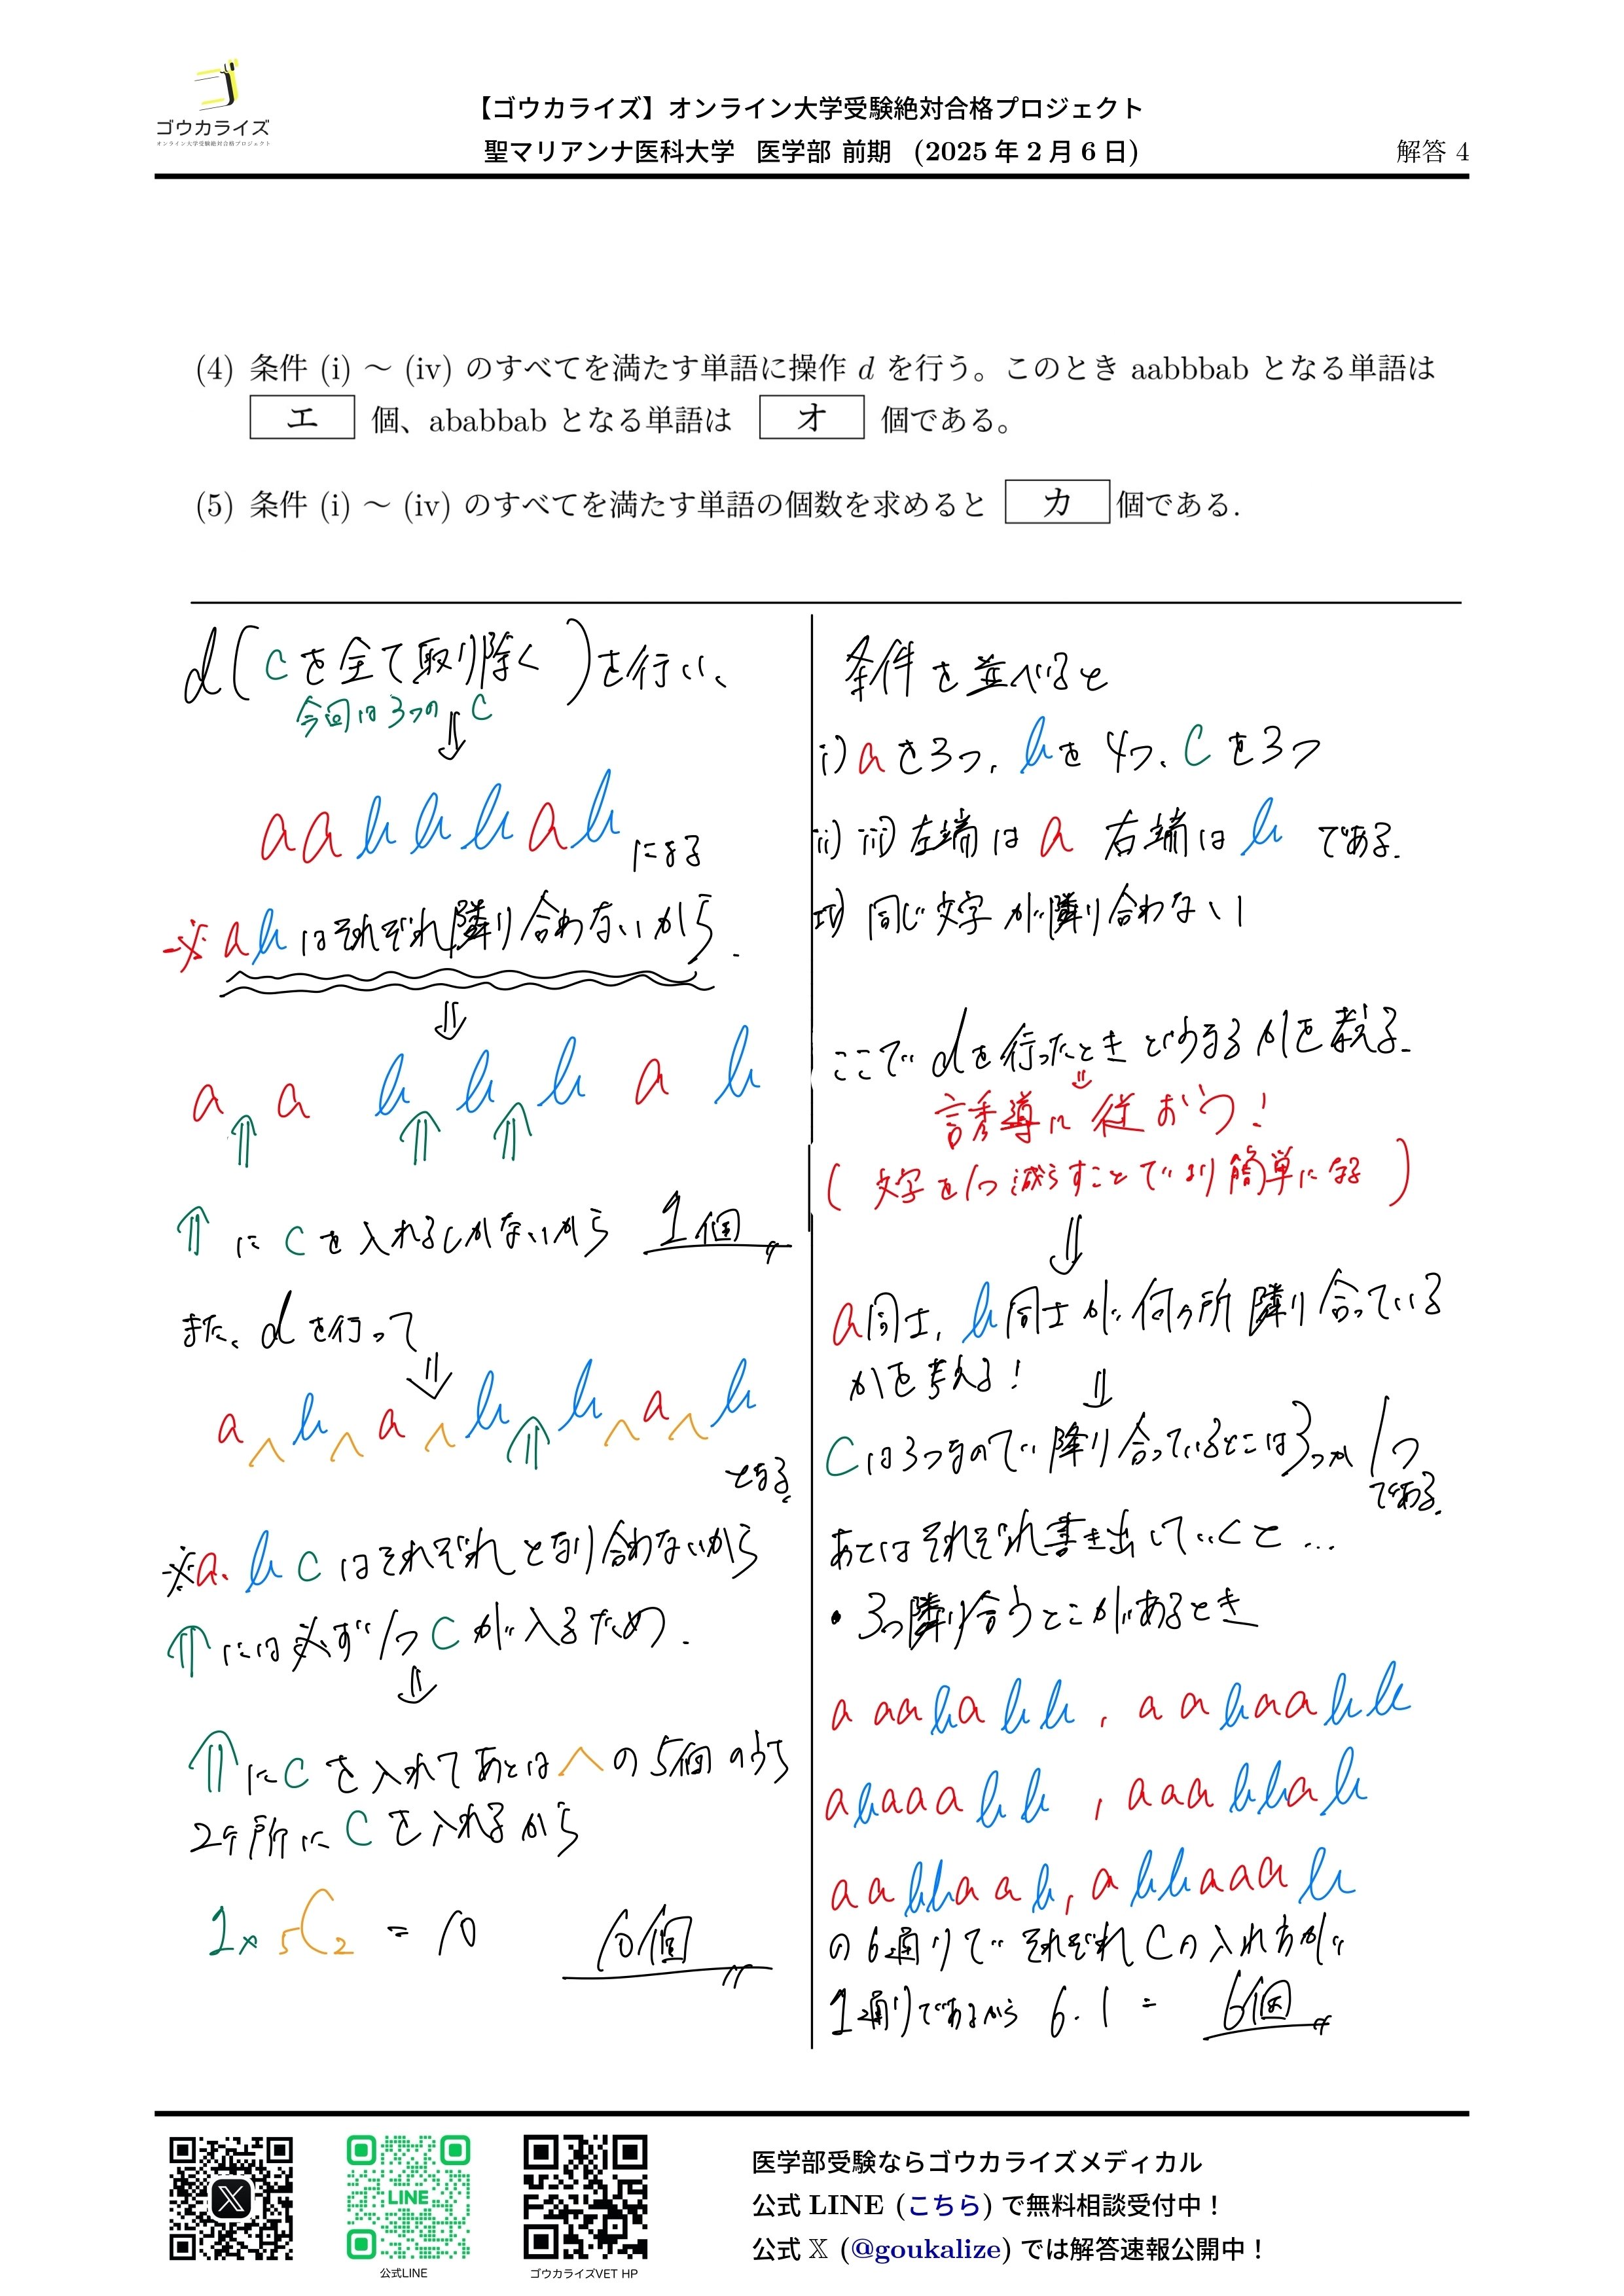 ゴウカライズ
オンライン大学受験絶対合格プロジェクト
【ゴウカライズ】オンライン大学受験絶対合格プロジェクト
聖マリアンナ医科大学 医学部 前期 (2025 年 2 月 6 日)
解答 4
(4) 条件 (i) ～ (iv) のすべてを満たす単語に操作 d を行う。このとき aabbbab となる単語は
エ 個、ababbab となる単語は オ 個である。
(5) 条件 (i) ～ (iv) のすべてを満たす単語の個数を求めると カ 個である.
d(cを全て取り除く)を行い、
今回は3つのC
⇓
aabbbab になる
※abはそれぞれ隣り合わないから.
⇓
a a b b b a b
⇑ ⇑ ⇑
⇑にcを入れるしかないから 1個
また、dを行って
⇓
a^b^a^b⇑b^a^b
となる
※a、b cはそれぞれとなり合わないから
⇑には必ず1つCが入るため.
⇓
⇑にCを入れてあとは^の5個のうち
2ヶ所にCを入れるから
1×5C2 = 10 10個
条件を並べると
i) aを3つ、bを4つ、Cを3つ
ii) iii) 左端はa 右端はb である.
iv) 同じ文字が隣り合わない
ここでdを行ったときどうなるかを考える.
⇓
誘導に従おう!
(文字を1つ減らすことでより簡単になる)
⇓
a同士、b同士が何ヶ所隣り合っている
かを考える!
⇓
Cは3つなので隣り合っているとこは3つか1つ
である.
あとはそれぞれ書き出していくと...
・3つ隣り合うとこがあるとき
aaababb, aabaabb
abaaabb, aaabbab
aabbaab, abbaaab
の6通りでそれぞれCの入れ方が
1通りであるから 6・1 = 6個
LINE
公式LINE
ゴウカライズVET HP
医学部受験ならゴウカライズメディカル
公式 LINE (こちら) で無料相談受付中！
公式 𝕏 (@goukalize) では解答速報公開中！